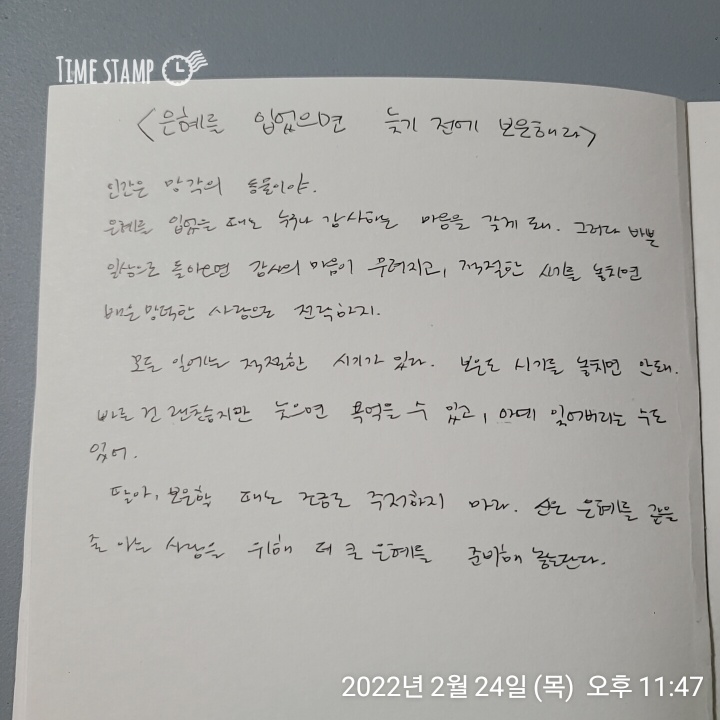 TIME STAMP
<은혜를 입었으면 늦기 전에 보은해라>
인간은 망각의 동물이야.
은혜를 입었을 때는 누구나 감사하는 마음을 갖게 돼. 그러다 바쁜
일상으로 돌아오면 감사의 마음이 무려지고, 적절한 시기를 놓치면
배은망덕한 사람으로 전락하지.
모든 일에는 적절한 시기가 있다. 보은도 시기를 놓치면 안돼.
빠른 건 괜찮지만 늦으면 욕먹을 수 있고, 아예 잊어버리는 수도
있어.
딸아, 보은할 때는 조금도 주저하지 마라. 신은 은혜를 갚을
줄 아는 사람을 위해 더 큰 은혜를 준비해 놓는단다.
2022년 2월 24일 (목) 오후 11:47